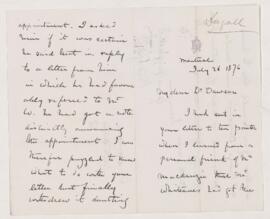 appointment. I asked
him if it was certain
he said but in reply
to a letter from him
in which he had favor
ably referred to Mr
W. he had got a note
distinctly announcing
the appointment. I was
therefore puzzled to know
what to do with your
letter but finally
withdrew it
Montreal
July 26 1876
My dear Dr Dawson
I had sent in
your letter to the
when I learned from a
personal friend of Mr
Mackenzie that Mr
Whiteaves had got the